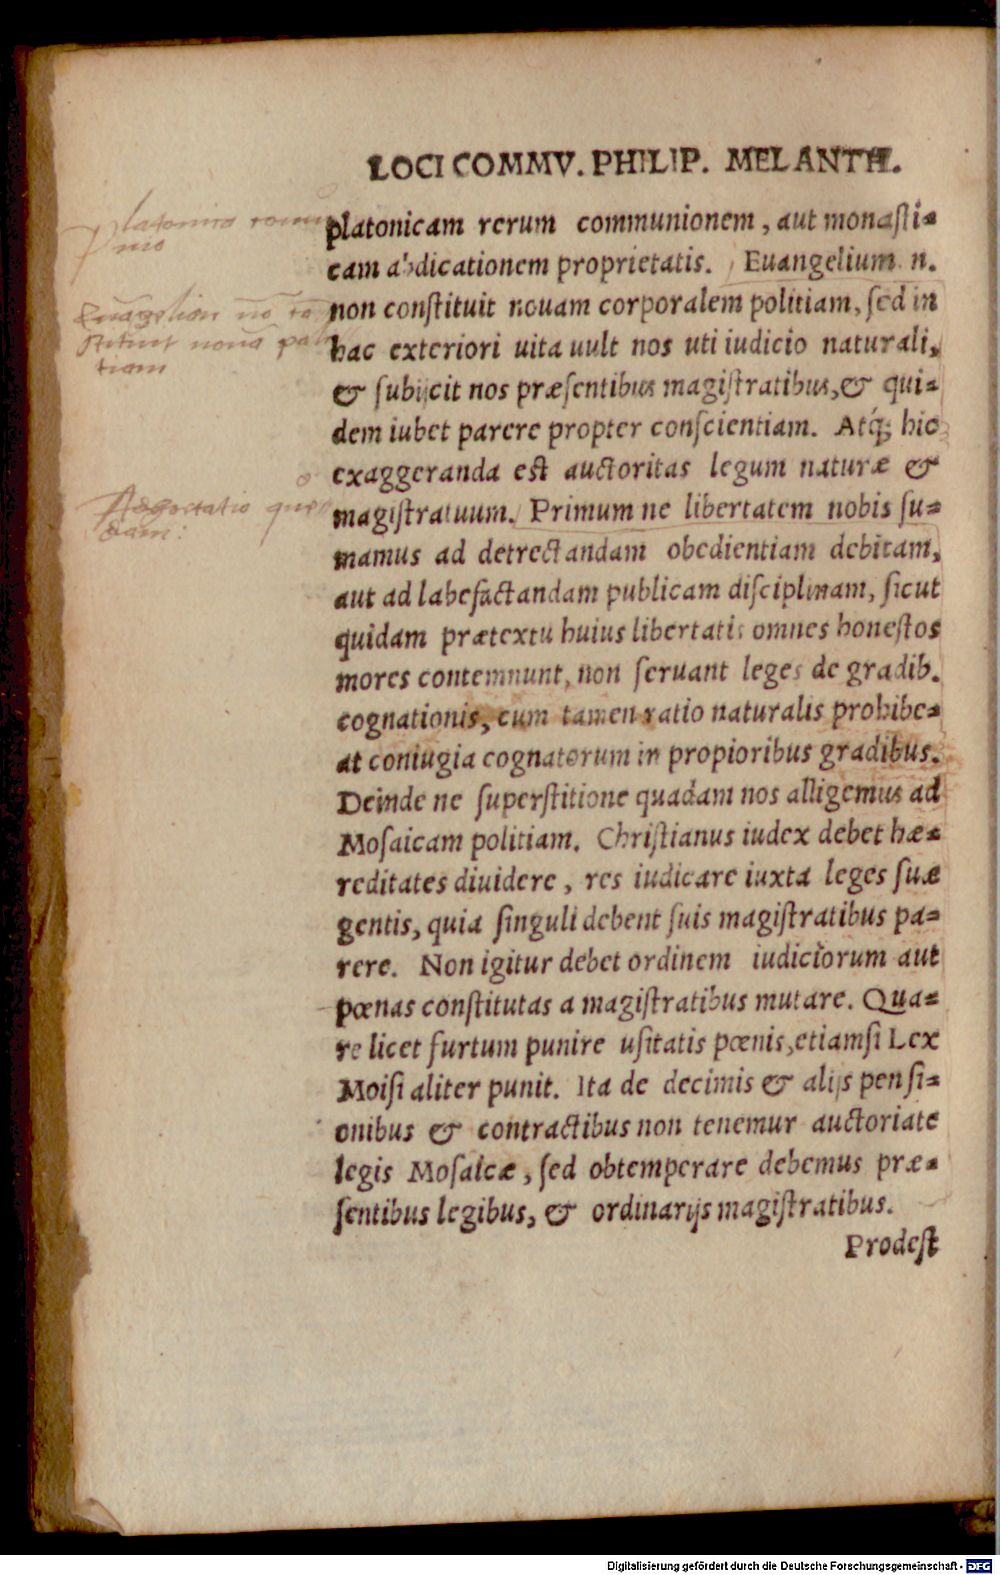 LOCI COMMV. PHILIP. MELANTH.
platonicam rerum communionem, aut monaſti=
cam abdicationem proprietatis. Euangelium n.
non conſtituit nouam corporalem politiam, ſed in
hac exteriori uita uult nos uti iudicio naturali,
& ſubijcit nos præſentibus magiſtratibus, & qui=
dem iubet parere propter conſcientiam. Atq́; hic
exaggeranda eſt auctoritas legum naturæ &
magiſtratuum. Primum ne libertatem nobis ſu=
mamus ad detrectandam obedientiam debitam,
aut ad labefactandam publicam diſciplinam, ſicut
quidam prætextu huius libertatis omnes honeſtos
mores contemnunt, non ſeruant leges de gradib.
cognationis, cum tamen ratio naturalis prohibe=
at coniugia cognatorum in propioribus gradibus.
Deinde ne ſuperſtitione quadam nos alligemus ad
Moſaicam politiam. Chriſtianus iudex debet hæ=
reditates diuidere, res iudicare iuxta leges ſuæ
gentis, quia ſinguli debent ſuis magiſtratibus pa=
rere. Non igitur debet ordinem iudiciorum aut
pœnas conſtitutas a magiſtratibus mutare. Qua=
re licet furtum punire uſitatis pœnis, etiamſi Lex
Moiſi aliter punit. Ita de decimis & alijs penſi=
onibus & contractibus non tenemur auctoriate
legis Moſaicæ, ſed obtemperare debemus præ=
ſentibus legibus, & ordinarijs magiſtratibus.
Prodeſt
Euāgelion nō
nouā
tiam
Digitalisierung gefördert durch die Deutsche Forschungsgemeinschaft - DFG